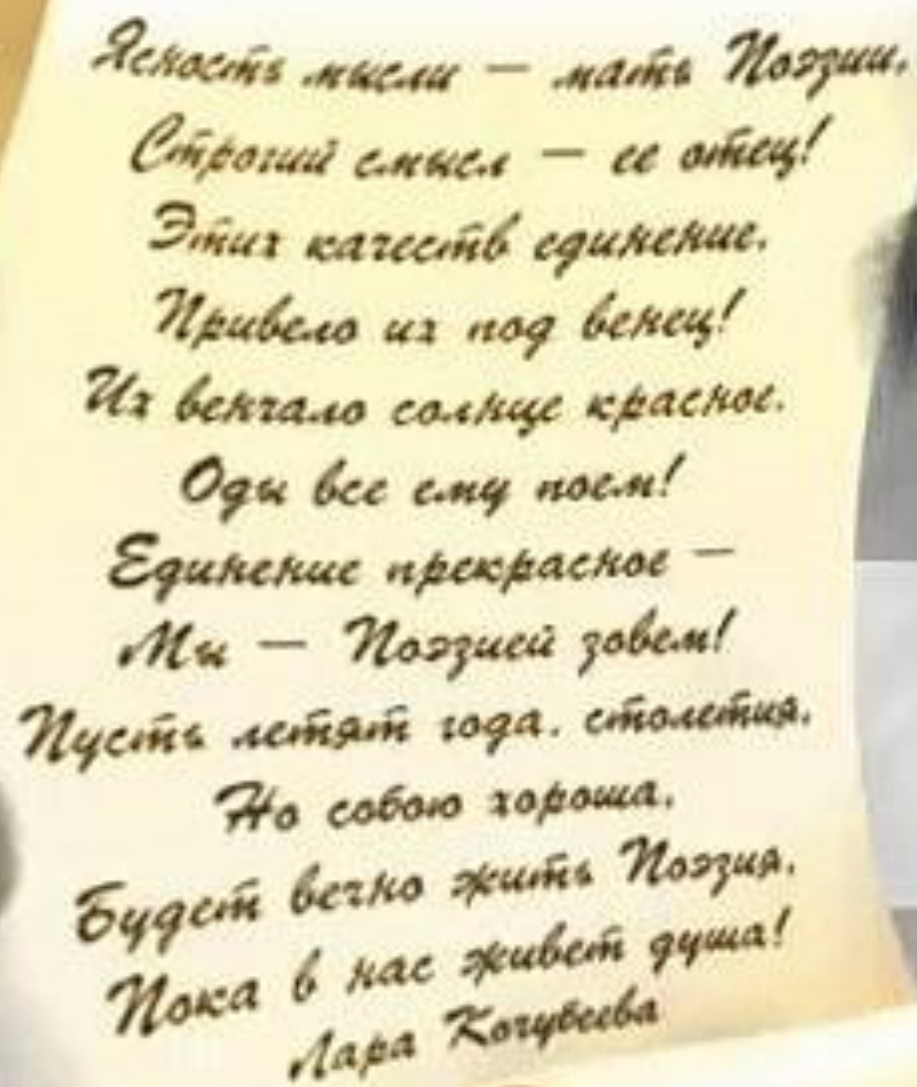 Ясность мысли — мать Поэзии,
Строгий смысл — ее отец!
Этих качеств единение,
Привело их под венец!
Их венчало солнце красное,
Оды все ему поем!
Единение прекрасное —
Мы — Поэзией зовем!
Пусть летят года, столетия,
Но собою хороша,
Будет вечно жить Поэзия,
Пока в нас живет душа!
Лара Кочубеева